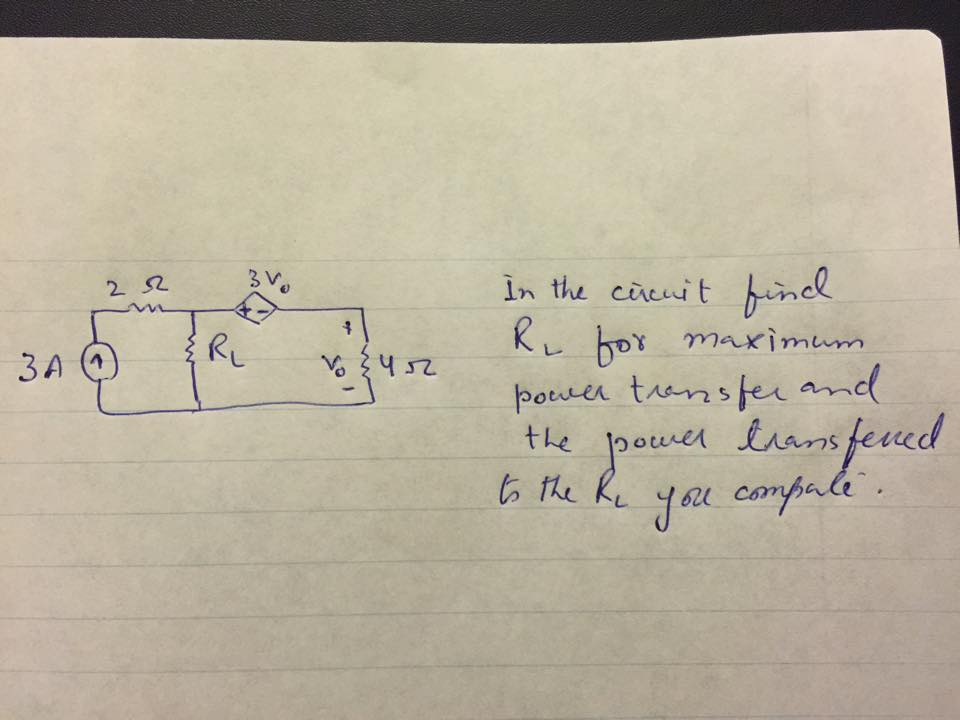 2 Ω
3V₀
3A
R_L
+ -
+
V₀
-
4Ω
In the circuit find
R_L for maximum
power transfer and
the power transferred
to the R_L you compute.